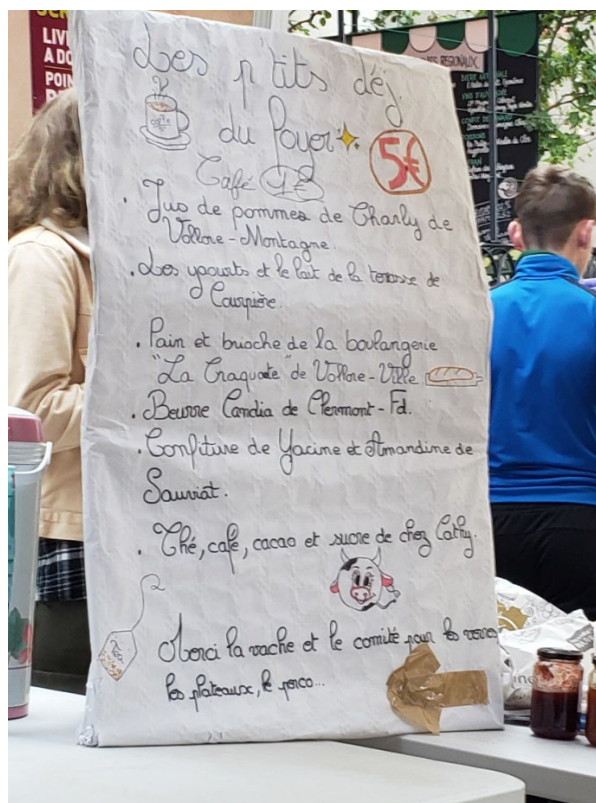 LIVE
A DO
POIN
Les p'tits déj
du foyer
5€
Café 1€
coffee
• Jus de pommes de Charly de
Vollore-Montagne.
• Les yaourts et le lait de la terrasse de
Courpière.
• Pain et brioche de la boulangerie
"La Craquote" de Vollore-Ville
• Beurre Candia de Clermont-Fd.
• Confiture de Yacine et Amandine de
Sauviat.
• Thé, café, cacao et sucre de chez Cathy.
Tea
Merci la vache et le comité pour les verres
les plateaux, le perco...